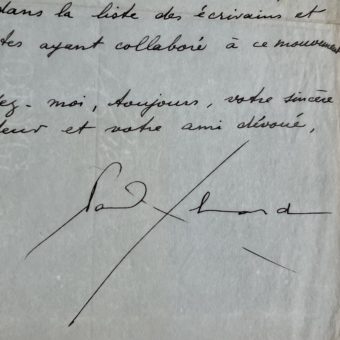 dans la liste des écrivains et
tes ayant collaboré à ce mouvement
ez-moi, toujours, votre sincère
eur et votre ami dévoué,
Paul Eluard